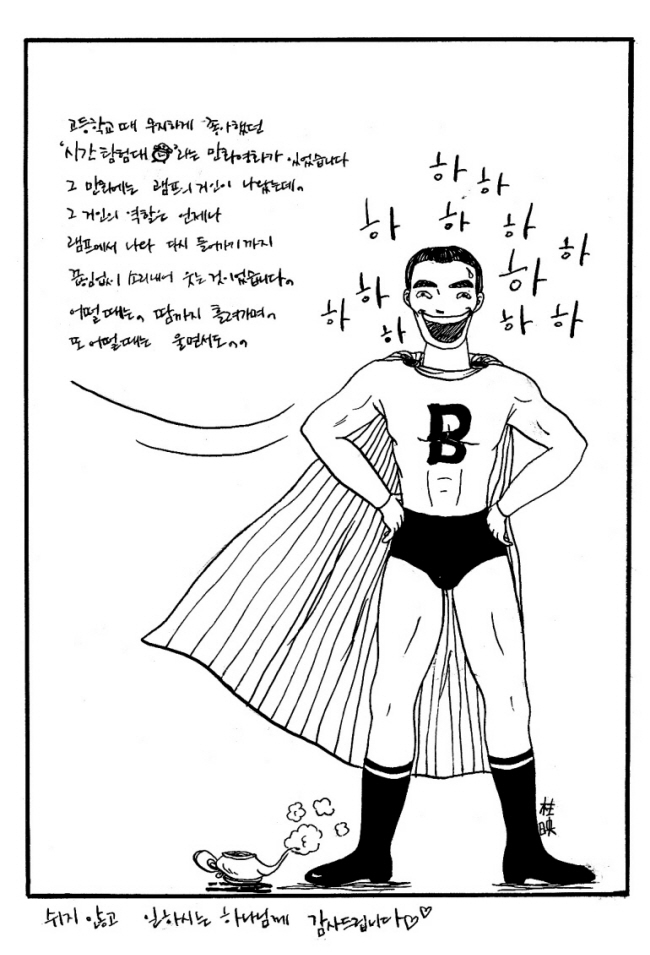 고등학교 때 무지하게 좋아했던
'시간탐험대'라는 만화영화가 있었습니다
그 만화에는 램프의 거인이 나왔는데。
그 거인의 역할은 언제나
램프에서 나와 다시 들어가기까지
끊임없이 소리내어 웃는 것이었습니다。
어떨 때는。 땀까지 흘려가며。
또 어떨 때는 울면서도。。
하 하
하 하 하 하
하 하
하 하 하 하
B
桂映
쉬지 않고 일하시는 하나님께 감사드립니다♡♡